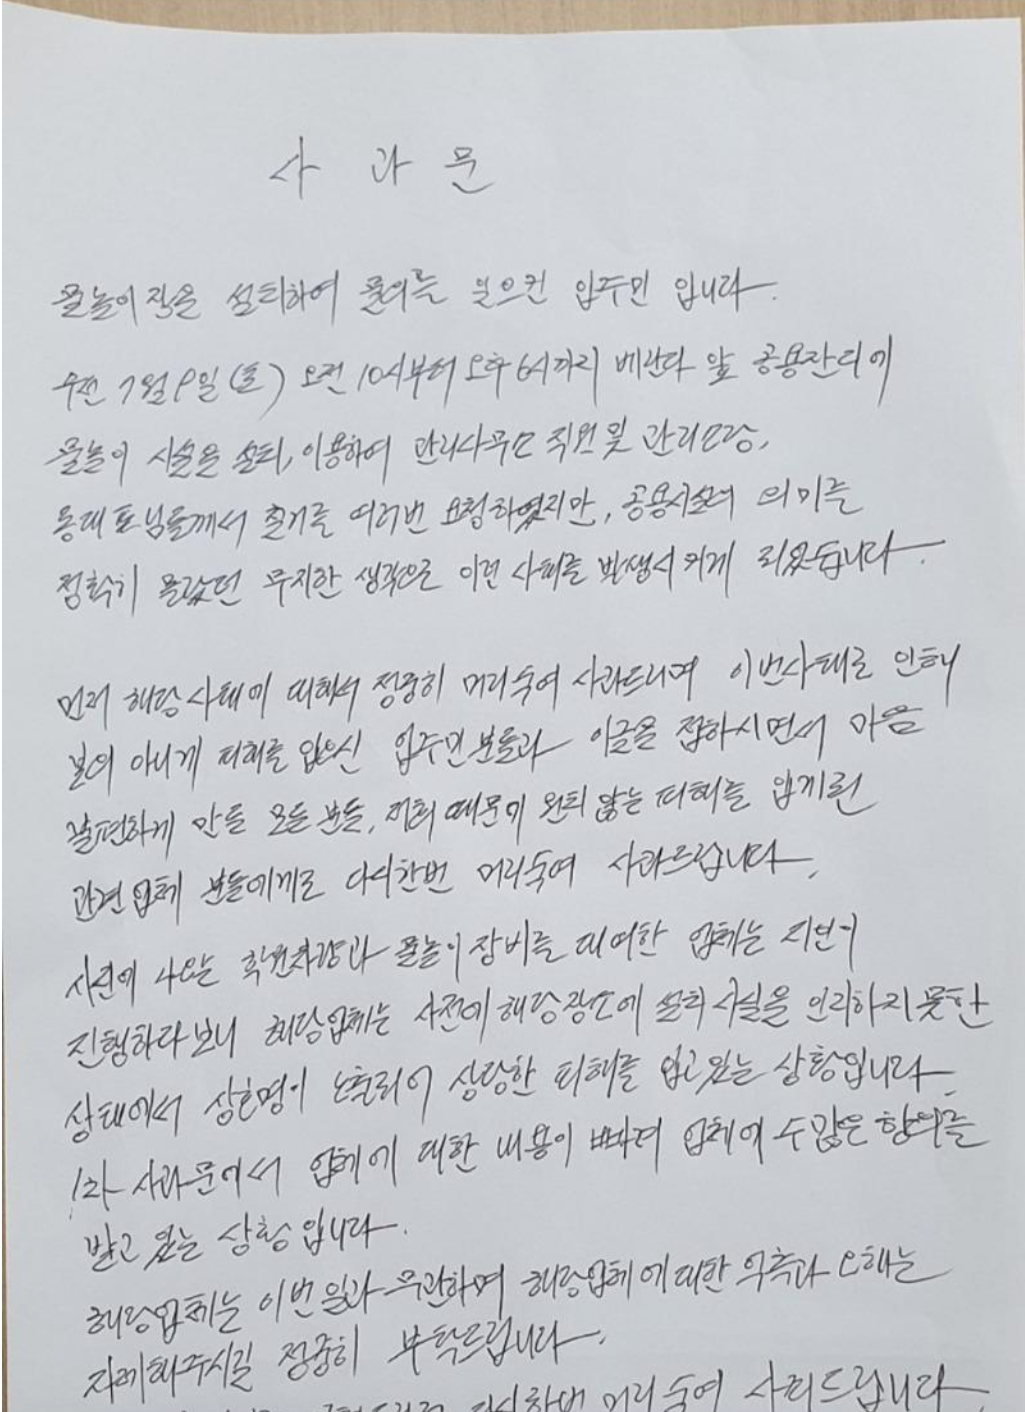 사 과 문
물놀이장을 설치하여 물의를 일으킨 입주민 입니다.
우선 7월9일(토) 오전 10시부터 오후 6시까지 베란다 앞 공용잔디에
물놀이 시설을 설치, 이용하여 관리사무소 직원 및 관리소장,
동대표님들께서 철거를 여러번 요청하였지만, 공용시설의 의미를
정확히 몰랐던 무지한 생각으로 이런 사태를 발생시키게 되었습니다.
먼저 해당사태에 대해서 정중히 머리숙여 사과드리며 이번사태로 인해
본의 아니게 피해를 입으신 입주민분들과 이글을 접하시면서 마음
불편하게 만든 모든 분들, 저희 때문에 원치 않는 피해를 입게된
관련업체 분들에게도 다시한번 머리숙여 사과드립니다.
사진에 나오는 학원차량과 물놀이장비를 대여한 업체는 지인이
진행하다보니 해당업체는 사전에 해당장소에 설치 사실을 인지하지 못한
상태에서 상호명이 노출되어 상당한 피해를 입고있는 상황입니다.
1차 사과문에서 업체에 대한 내용이 빠져 업체에 수많은 항의를
받고 있는 상황 입니다.
해당업체는 이번일과 무관하며 해당업체에 대한 억측과 오해는
자제해주시길 정중히 부탁드립니다.
다시한번 머리숙여 사죄드립니다